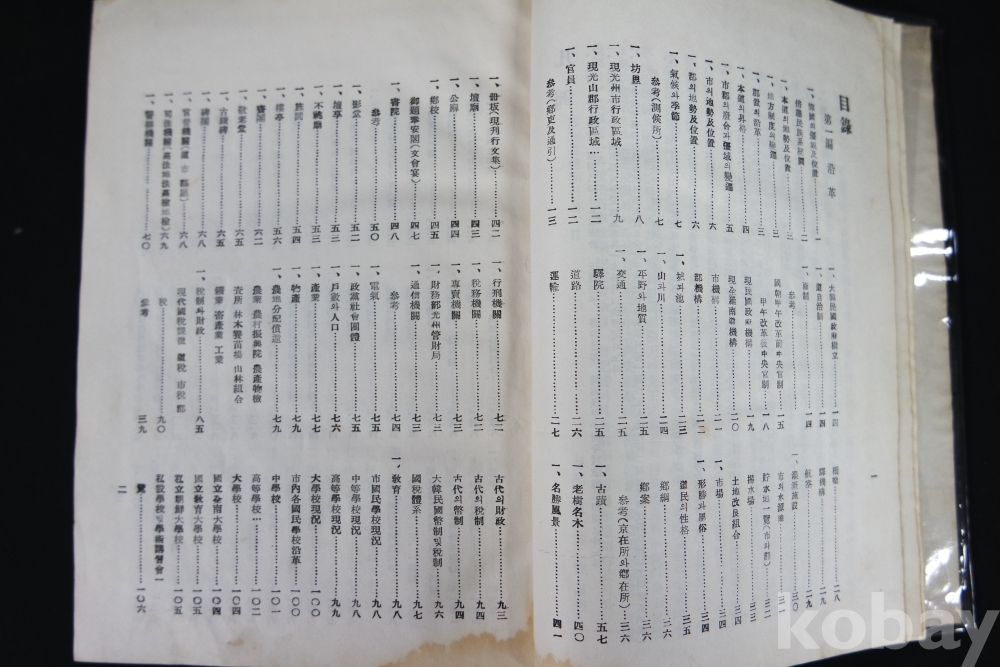 目錄
第一編 沿革
一、韓國의疆域及位置……一
倍達民族系統圖……二
一、本道의地勢及位置……三
一、地方制度의變遷……三
一、郡置의沿革……三
一、本道의昇格……四
一、市郡의府合과疆域의變遷……五
一、市의地勢及位置……六
一、郡의地勢及位置……六
一、氣候와季節……七
參考(測候所)……七
一、坊里……八
一、現光州市行政區域……九
一、現光山郡行政區域……一二
一、官員……一二
參考(鄕吏及通引)……一三
一、大韓民國政府樹立……一四
一、道自治制……一四
一、面制……一四
參考
國朝甲午改革前中央官制……一五
甲午改革後中央官制……一八
現民國政府機構……一九
現全羅南道機構……二〇
市機構……二一
郡機構……二二
一、城과池……二三
一、山과川……二四
一、平野와地質……二五
一、交通……二五
驛院……二五
道路……二六
運輸……二七
橋梁……二八
驛機構……二九
航空……二九
一、灌漑施設……三〇
市의水源池……三一
貯水池一覽(市와郡)……三二
揚水場
土地改良組合……三四
市場……三四
一、形勝과風俗
鄕民의性格……三五
鄕綱……三六
鄕案……三六
參考(京在所와鄕在所)……三六
一、古蹟……五七
一、老樹名木……四〇
一、名勝風景……四一
一
一、冊板(現刊行文集)……四二
一、壇廟……四三
一、公廨……四四
一、鄕校……四五
御題季安閣(文會宴)……四七
一、書院……四八
參考……五〇
一、影堂……五二
一、壇亭……五三
一、不祧廟……五三
一、旌閭……五四
一、樓亭……五六
一、齋閣……六二
一、敬老堂……六五
一、古碑……六五
一、碑閣……六八
一、官普機關(道 市 郡)……六八
一、司法機關(高法地法高檢地檢)六九
一、警察機關……七〇
一、行刑機關……七二
一、稅務機關……七二
一、專賣機關……七三
一、財務部光州管財局……七三
一、通信機關……七三
參考……七四
一、電氣……七五
一、政黨社會團體……七五
一、戶數와人口……七六
一、產業……七七
一、物產……七九
一、農地分配償還……七九
農業 農村振興院 農產物檢
查所 林木養苗楊 山林組合
鑛業 畜產業 工業
一、稅制와財政……八五
現代國稅課徵 道稅 市稅郡
稅……九〇
參考……三九
古代의財政……九三
古代의稅制……九四
古代의幣制……九四
大韓民國幣制및稅制……九六
國稅體系……九七
一、敎育……九八
市國民學校現況……九八
中等學校現況……九九
高等學校現況……九九
大學校現況……一〇〇
市內各國民學校沿革……一〇〇
中學校……一〇一
高等學校……一〇二
大學校……一〇四
國立全南大學校……一〇四
國立敎育大學校……一〇五
私立朝鮮大學校……一〇五
私設學校및學術講習會一
覽……一〇六
二
kobay